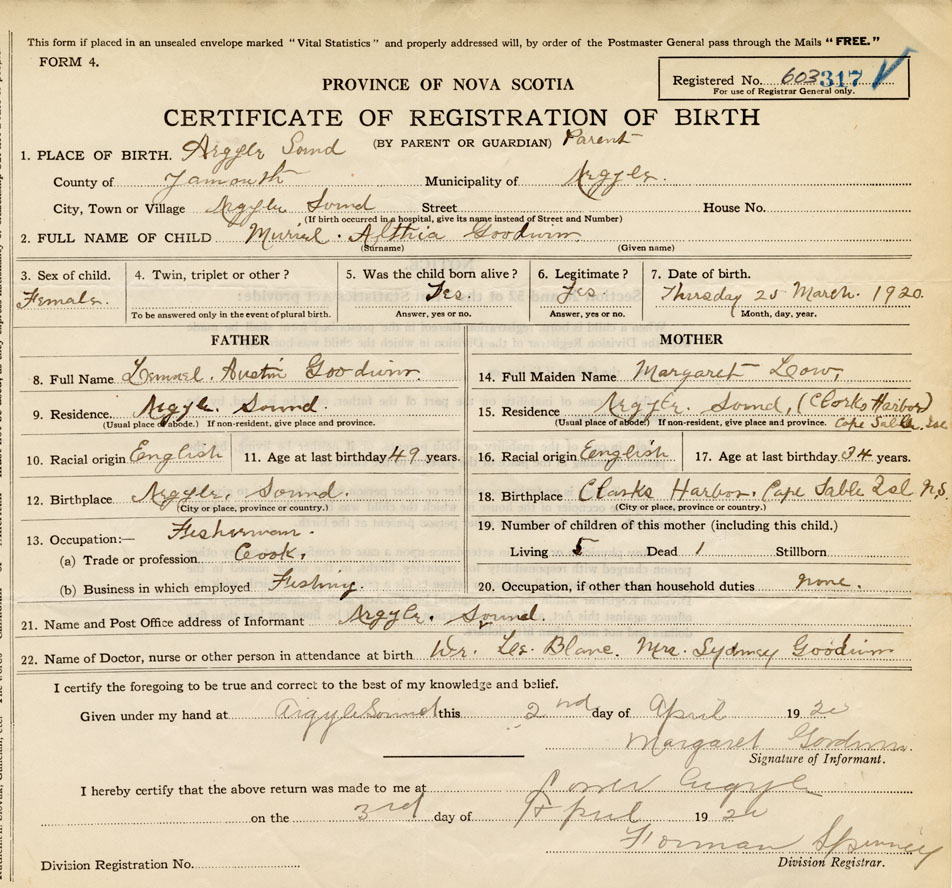 This form if placed in an unsealed envelope marked "Vital Statistics" and properly addressed will, by order of the Postmaster General pass through the Mails "FREE."
FORM 4.
Registered No. 603 317
For use of Registrar General only.
PROVINCE OF NOVA SCOTIA
CERTIFICATE OF REGISTRATION OF BIRTH
(BY PARENT OR GUARDIAN) Parent
1. PLACE OF BIRTH. Argyle Sound
County of Yarmouth Municipality of Argyle.
City, Town or Village Argyle Sound Street House No.
(If birth occurred in a hospital, give its name instead of Street and Number)
2. FULL NAME OF CHILD Muriel. Althia Goodwin
(Surname) (Given name)
3. Sex of child. 4. Twin, triplet or other? 5. Was the child born alive? 6. Legitimate? 7. Date of birth.
Female. Yes. Yes. Thursday 25 March. 1920.
To be answered only in the event of plural birth. Answer, yes or no. Answer, yes or no. Month, day, year.
FATHER
8. Full Name Lemuel Austin Goodwin.
9. Residence. Argyle. Sound.
(Usual place of abode.) If non-resident, give place and province.
10. Racial origin English 11. Age at last birthday 49 years.
12. Birthplace Argyle. Sound.
(City or place, province or country.)
13. Occupation:— Fisherman.
(a) Trade or profession Cook.
(b) Business in which employed Fishing.
MOTHER
14. Full Maiden Name Margaret Low,
15. Residence Argyle. Sound, (Clarks Harbor)
(Usual place of abode) If non-resident, give place and province. Cape Sable. Isl
16. Racial origin English 17. Age at last birthday 34 years.
18. Birthplace Clarks Harbor. Cape Sable Isl N.S.
(City or place, province or country.)
19. Number of children of this mother (including this child.)
Living 5 Dead 1 Stillborn
20. Occupation, if other than household duties none.
21. Name and Post Office address of Informant Argyle. Sound.
22. Name of Doctor, nurse or other person in attendance at birth Le Blanc. Mrs. Sydney Goodwin
I certify the foregoing to be true and correct to the best of my knowledge and belief.
Given under my hand at Argyle Sound this 2nd day of April 19 20
Margaret Goodwin.
Signature of Informant.
I hereby certify that the above return was made to me at Lower Argyle
on the 3rd day of April 19 20
Forman Spinney
Division Registration No. Division Registrar.